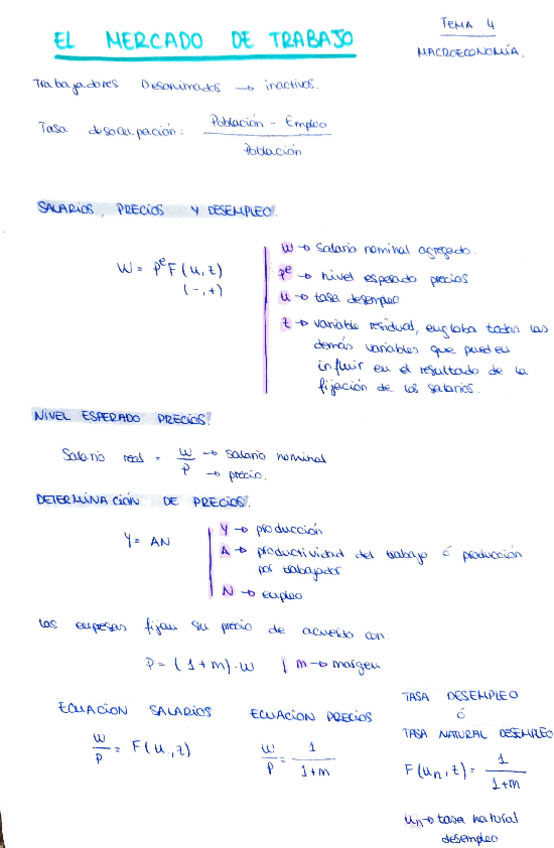 EL MERCADO DE TRABAJO
TEMA 4
MACROECONOMÍA.
Trabajadores Desanimados → inactivos.
Tasa desocupación: Población - Empleo
Población
SALARIOS, PRECIOS Y DESEMPLEO.
W = Pᵉ F(u, z)
(-, +)
W → Salario nominal agregado.
Pᵉ → nivel esperado precios
u → tasa desempleo
z → variable residual, engloba todas las
demás variables que pueden
influir en el resultado de la
fijación de los salarios.
NIVEL ESPERADO PRECIOS.
Salario real = W → salario nominal
P → precio.
DETERMINACIÓN DE PRECIOS.
Y = AN
Y → producción
A → productividad del trabajo ó producción
por trabajador
N → empleo
Las empresas fijan su precio de acuerdo con:
P = (1+m)·W | m → margen
ECUACION SALARIOS
W/P = F(u, z)
ECUACION PRECIOS
W/P = 1/(1+m)
TASA DESEMPLEO
Ó
TASA NATURAL DESEMPLEO
F(uₙ, z) = 1/(1+m)
uₙ → tasa natural
desempleo